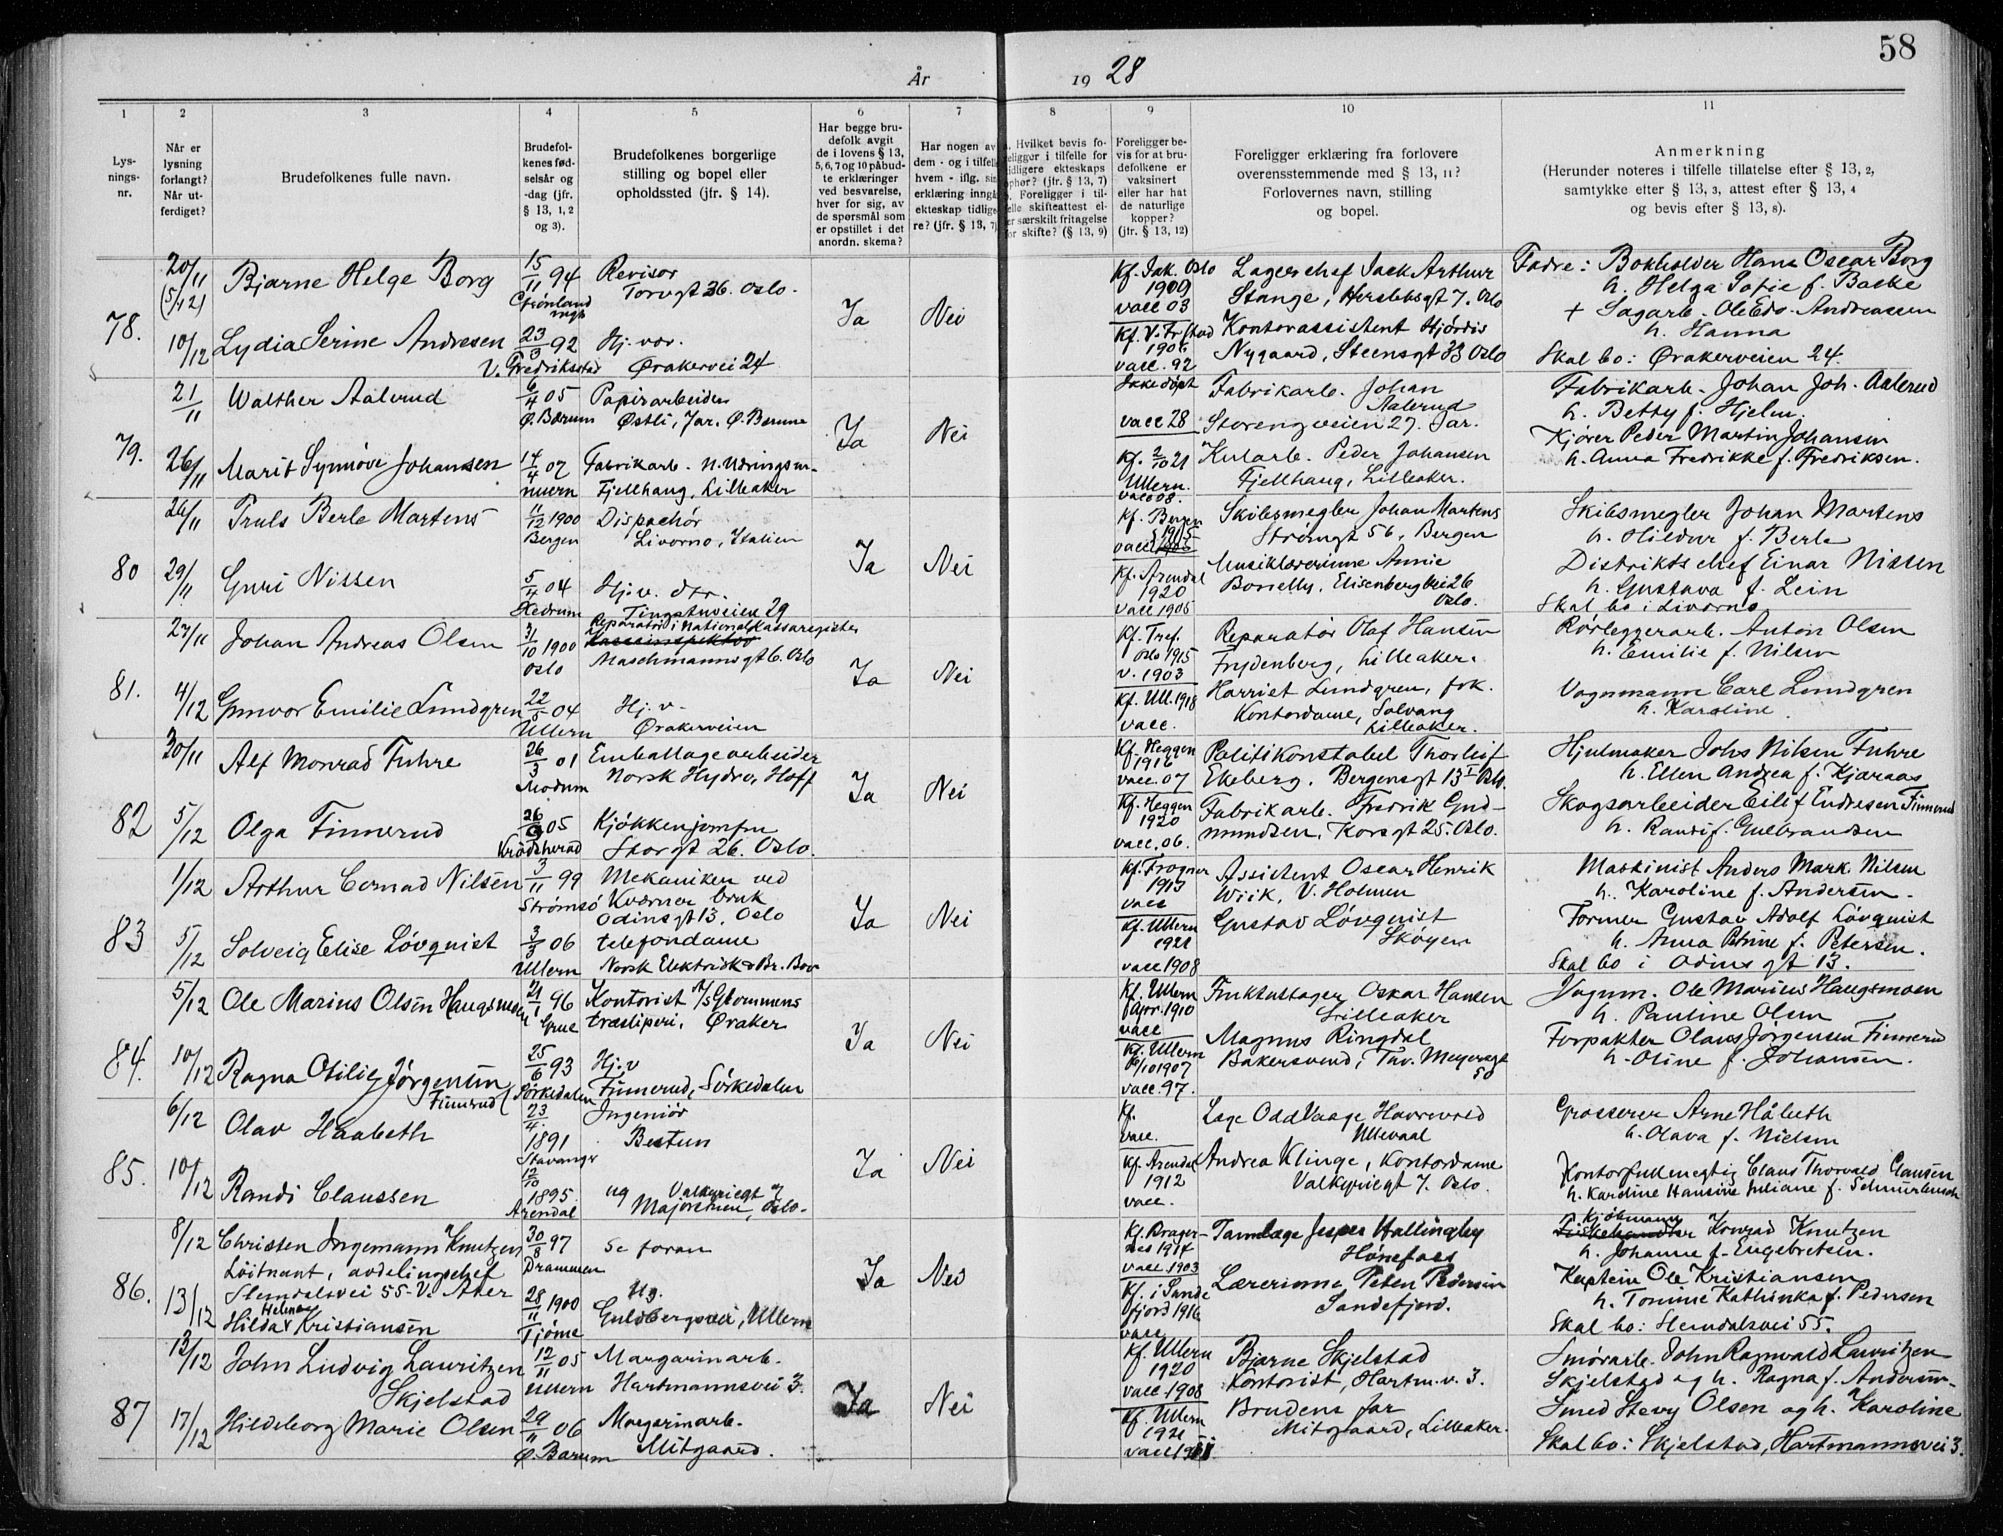 58
År 1928
1 2 3 4 5 6 7 8 9 10 11
Lysningsnr.
Når er lysning forlangt? Når utferdiget?
Brudefolkenes fulle navn.
Brudefolkenes fødselsår og -dag (jfr. § 13, 1, 2 og 3).
Brudefolkenes borgerlige stilling og bopel eller opholdssted (jfr. § 14).
Har begge brudefolk avgit de i lovens § 13, 5, 6, 7 og 10 påbudte erklæringer ved besvarelse, hver for sig, av de spørsmål som er opstillet i det anordn. skema?
Har nogen av dem - og i tilfelle hvem - iflg. sin erklæring inngå ekteskap tidligere? (jfr. § 13, 7)
Hvilket bevis foreligger i tilfelle for tidligere ekteskaps ophør? (jfr. § 13, 7) Foreligger i tilfelle skifteattest eller særskilt fritagelse for skifte? (§ 13, 9)
Foreligger bevis for at brudefolkene er vaksinert eller har hat de naturlige kopper? (jfr. § 13, 12)
Foreligger erklæring fra forlovere overensstemmende med § 13, 11? Forlovernes navn, stilling og bopel.
Anmerkning (Herunder noteres i tilfelle tillatelse efter § 13, 2, samtykke efter § 13, 3, attest efter § 13, 4 og bevis efter § 13, 8).
78. 20/11 (5/12) Bjarne Helge Borg 15/11 94 Revisor Torvgt 36. Oslo. Ja Nei
Kf. Jak. Oslo 1909 vacc 03 Lagerchef Jack Arthur Stange, Herslebsgt 7. Oslo
Fadre: Bokholder Hans Oscar Borg h. Helga Sofie f. Bache
10/12 Lydia Serine Andresen 23/3 92 V. Fredriksstad Hj. vær. Ørakervei 24
Kf. V. Fr.stad 1906 vacc. 92 Kontorassistent Hjørdis Nygaard, Steensgt 33 Oslo
+ Sagarb. Ole Edv. Andreassen h. Hanna
Skal bo: Ørakerveien 24.
79. 21/11 Walther Aalerud 6/4 05 Ø. Bærum Papirarbeider Østli, Jar. Ø. Bærum Ja Nei
Ikke døpt vacc 28 Fabrikarb. Johan Aalerud Storengveien 27. Jar.
Fabrikarb. Johan Joh. Aalerud h. Betty f. Hjelm.
26/11 Marit Synnøve Johansen 14/4 07 Fabrikarb. Fjellhaug, Lilleaker
Kf. 2/10 21 Ullern. vacc 08. Kularb. Peder Johansen Fjellhaug, Lilleaker.
Kjører Peder Martin Johansen h. Anna Fredrikke f. Fredriksen.
80 26/11 Truls Berle Martens 11/12 1900 Bergen Dispachør Livorno, Italien Ja Nei
Kf. Bergen 1915 vacc Skibsmegler Johan Martens Strømgt 56, Bergen
Skibsmegler Johan Martens h. Hildur f. Berle
29/11 Guri Nissen 5/4 04 Hedrum Hj. v. dtr. Tingstuveien 29
Kf. Arendal 1920 vacc 1905 Musiklærerinne Annie Elisenbergvei 26 Oslo.
Distriktschef Einar Nissen h. Gustava f. Lein
Skal bo i Livorno
81. 27/11 Johan Andreas Olsen 31/10 1900 Oslo Reparatør i National Kassaregister Kasseinspektør Maschmannsgt 6. Oslo Ja Nei
Kf. Tref. Oslo 1915 v. 1903 Reparatør Olaf Hansen Frydenberg, Lilleaker.
Rørleggerarb. Anton Olsen h. Emilie f. Nilsen
4/12 Gunvor Emilie Lundgren 22/5 04 Ullern Hj. v. Ørakerveien
Kf. Ull. 1918 vacc. Harriet Lundgren, frk. Kontordame, Solvang Lilleaker.
Vognmann Carl Lundgren h. Karoline
82 30/11 Alf Monrad Fuhre 26/3 01 Modum Emballagearbeider Norsk Hydro, Hoff Ja Nei
Kf. Heggen 1916 vacc. 07 Politikonstabel Thorleif Ekeberg. Bergensgt 13 I Oslo.
Hjulmaker Johs Nilsen Fuhre h. Ellen Andrea f. Kjøraas
5/12 Olga Finnerud 26/9 05 Krødsherad Kjøkkenjomfru Storgt 26. Oslo.
Kf. Heggen 1920 vacc. 06. Fabrikarb. Fredrik Gudmundsen, Korsgt 25. Oslo.
Skogsarbeider Eilif Endresen Finnerud h. Randi f. Gulbrandsen
83 1/12 Arthur Conrad Nilsen 3/11 99 Strømsø Mekaniker ved Kværner bruk Odinsgt 13, Oslo Ja Nei
Kf. Frogner 1915 vacc Assistent Oscar Henrik Wiik, V. Holmen
Maskinist Anders Mark. Nilsen h. Karoline f. Andersen.
5/12 Solveig Elise Lövquist 3/3 06 Ullern telefondame Norsk Elektrisk & Br. Bov
Kf. Ullern 1921 vacc 1908 Gustav Lövquist Skøyen
Former Gustav Adolf Lövquist h. Anna Petrine f. Petersen.
Skal bo i Odinsgt 13.
84. 5/12 Ole Marius Olsen Haugsmoen 21/1 96 Grue Kontorist A/S Glommens træsliperi, Øraker Ja Nei
Kf. Ullern 1910 vacc Frukthandler Oskar Hansen Lilleaker
Vognm. Ole Marius Haugsmoen h. Pauline Olsen
10/12 Ragna Otilie Jørgensen Finnerud 25/6 93 Sørkedalen Hj. v Finnerud, Sørkedalen
Kf. Ullern 6/10 1907 vacc. 97. Magnus Ringdal Bakersvend, Thv. Meyersgt 50
Forpakter Olaus Jørgensen Finnerud h. Oline f. Johansen.
85. 6/12 Olav Haabeth 23/4. 1891 Stavanger Ingeniør Bestum Ja Nei
Kf. vacc. Læge Odd Vaage Havrevold Ullevaal
Grosserer Arne Håbeth h. Olava f. Nielsen
10/12 Randi Claussen 12/10 1895. Arendal ug Valkyriegt 7 Majorstuen, Oslo.
Kf. Arendal 1912 vacc. Andrea Klinge, Kontordame Valkyriegt 7. Oslo.
Kontorfullmegtig Claus Thorvald Claussen h. Karoline Hansine Juliane f.
86. 8/12 Christen Ingemann Knutzen Löitnant, avdelingschef Slemdalsvei 55. V. Aker 30/8 97 Drammen Se foran Ja Nei
Kf. Bragernes 1914 vacc. 1903 Tannlæge Jesper Hallingby Hønefoss
Kjøbmann Fiskehandler Konrad Knutzen h. Johanne f. Engebretsen.
13/12 Hilda Helena Kristiansen 28/11 1900 Tjøme Ug. Guldbergsvei, Ullern
Kf. i Sandefjord 1916 vacc Lærerinne Petra Pedersen Sandefjord.
Kaptein Ole Kristiansen h. Tomine Kathinka f. Pedersen
Skal bo: Slemdalsvei 55.
87 12/12 John Ludvig Lauritzen Skjelstad 12/11 05 Ullern Margarinarb. Hartmannsvei 3. Ja Nei
Kf. Ullern 1920 vacc 1908 Bjarne Skjelstad Kontorist, Hartm. v. 3.
Smørarb. John Ragnvald Lauritzen Skjelstad og h. Ragna f. Andersen.
17/12 Hildeborg Marie Olsen 29/11 06 Ø. Bærum Margarinarb. Mitgaard.
Kf. Ullern 1921 vacc Brudens far Mitgaard, Lilleaker.
Smed Olsen og h. Karoline
Skal bo: Skjelstad, Hartmannsvei 3.